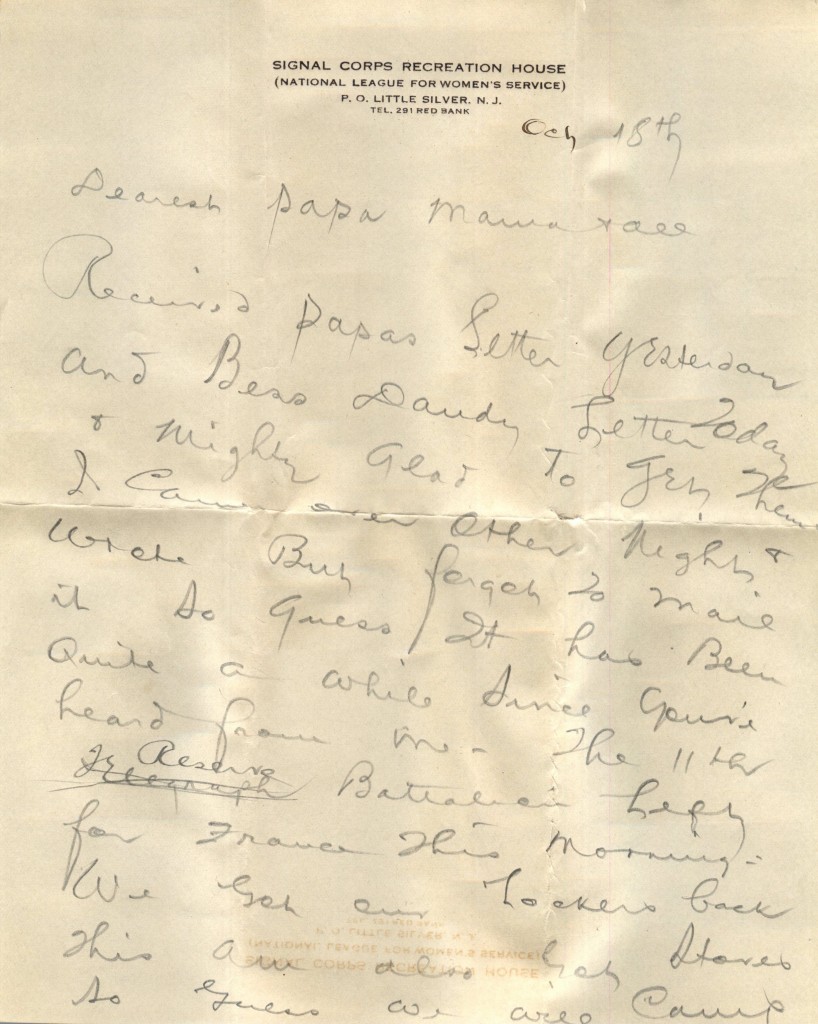 SIGNAL CORPS RECREATION HOUSE
(NATIONAL LEAGUE FOR WOMEN'S SERVICE)
P. O. LITTLE SILVER, N. J.
TEL. 291 RED BANK
Oct 18th
Dearest Papa Mama & all
Received Papas Letter Yesterday
and Bess Dandy Letter Today
& Mighty Glad To Get Them
I Came over Other Night &
Wrote But forgot To Mail
it So Guess It has Been
Quite a while Since You've
heard from me - The 11th
Reserve
Telegraph Battalion Left
for France This Morning -
We Got our Lockers back
This am also Got Stoves
So Guess we will Camp
P. O. LITTLE SILVER, N. J.
(NATIONAL LEAGUE FOR WOMEN'S SERVICE)
SIGNAL CORPS RECREATION HOUSE